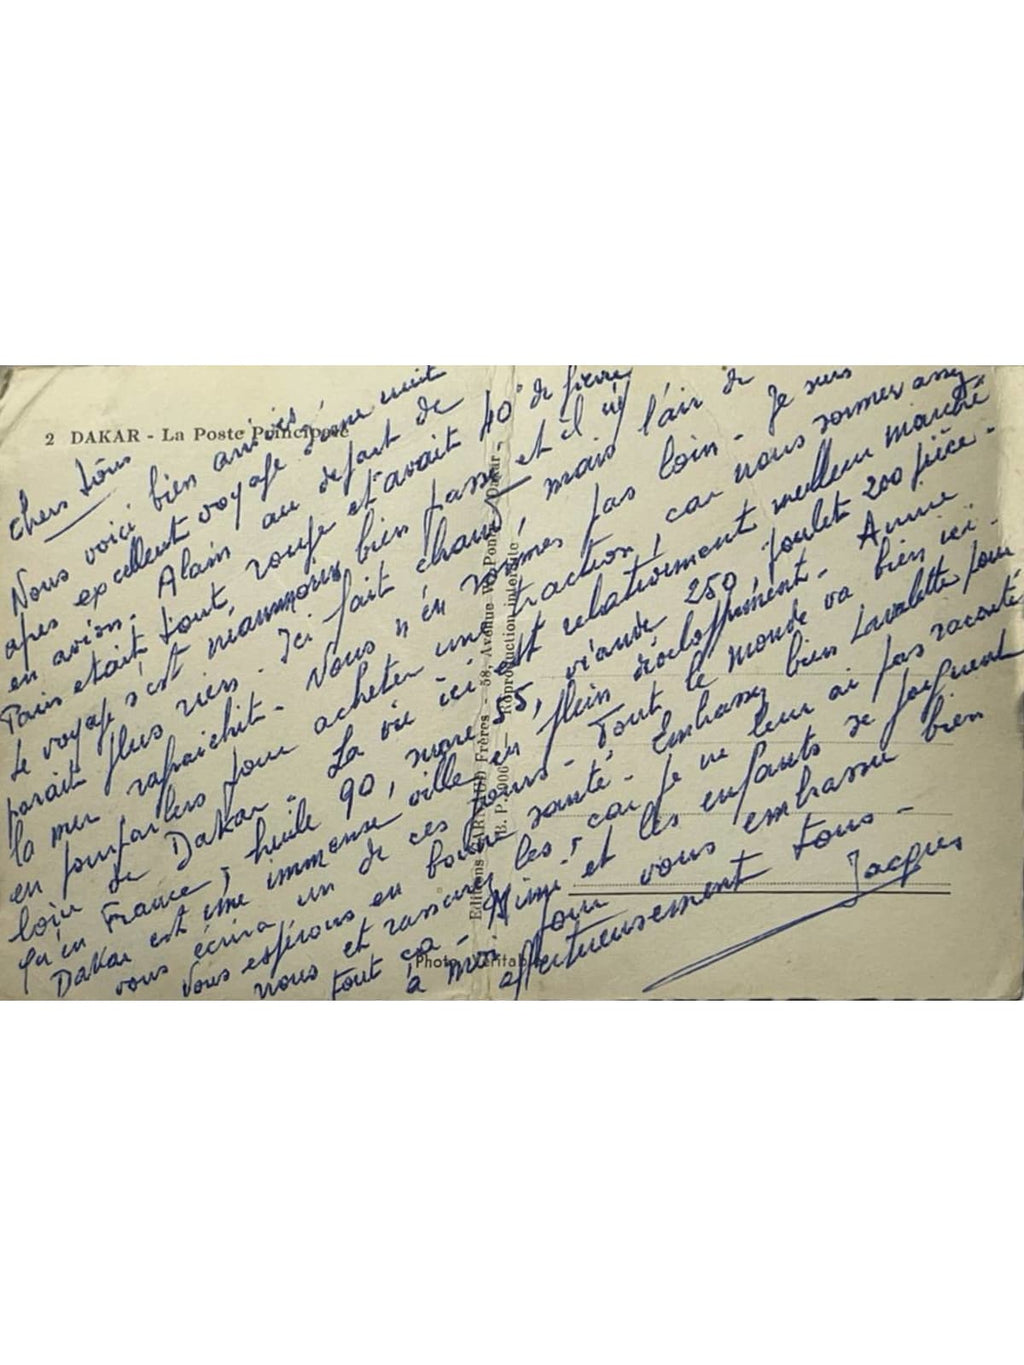 2 DAKAR - La Poste Principale
Chers tous
Nous voici bien arrivés,
apres excellent voyage d'une nuit
en avion. Alain au depart de
Paris etait tout rouge et avait 40° de fièvre
Le voyage s'est neanmoins bien passé et il n'y
parait plus rien. Ici fait chaud mais l'air de
la mer rafraichit. Nous n'en sommes pas loin - Je suis
en pourparlers pour acheter une traction, car nous sommes assez
loin de Dakar - La vie ici est relativement meilleur marché
qu'en France, huile 90, sucre 55, viande 250, poulet 200 pièce -
Dakar est une immense ville en plein développement -
vous écrira un de ces jours - Tout le monde va bien ici -
Vous espérons en bonne santé - Embrassez bien Lavalette pour
nous et rassurez les, car je ne leur ai pas raconté
tout ça - et les enfants se joignent
à moi pour vous embrasser bien
affectueusement tous -
Jacques
Annie
Editions Frères - 58, Avenue W.-Ponty, Dakar -
B. P. Reproduction interdite
Photo Véritable